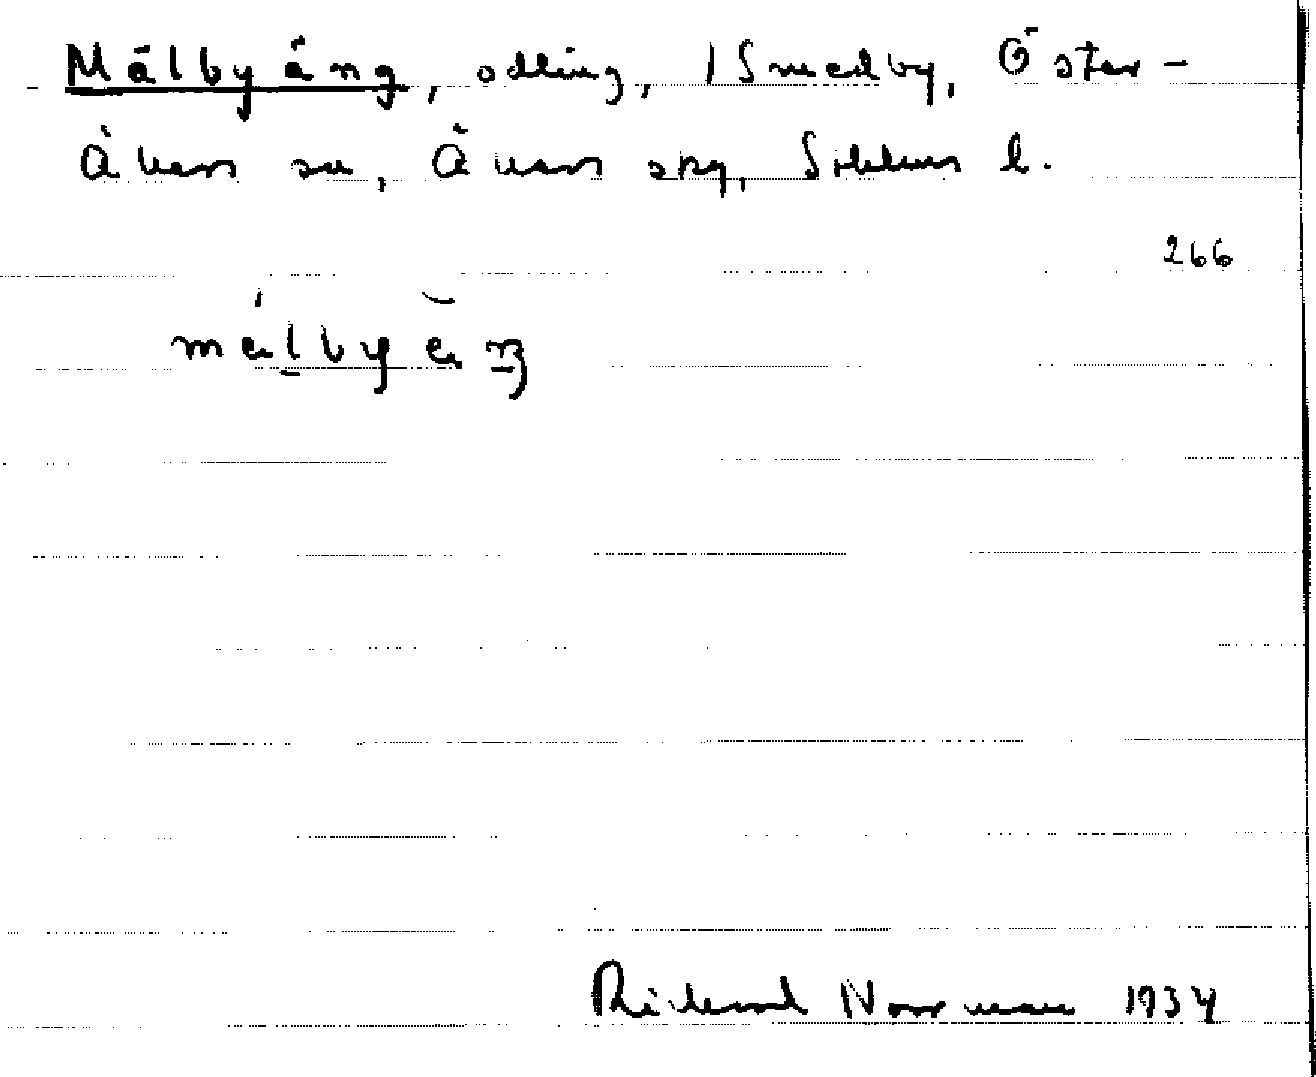 Målbyäng, odling, 1 Smedby, Öster-
Åkers sn, Åkers skg, Sthlms l.
266
målbyäŋ
Rickard Norrman 1934